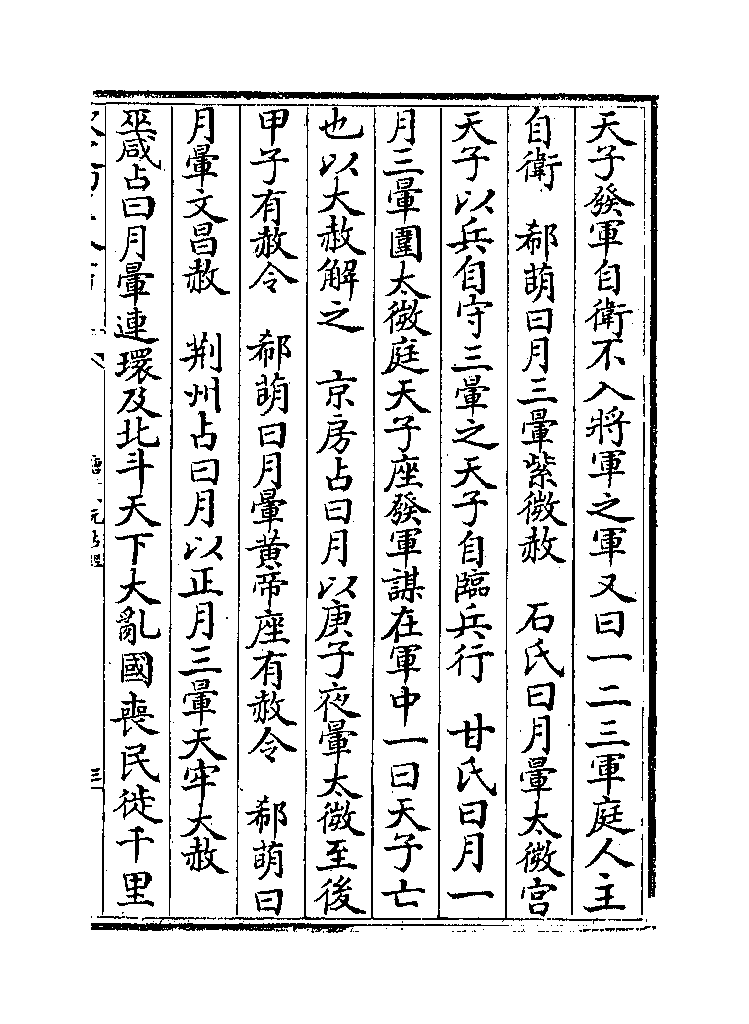 天子發軍自衛不入將軍之軍又曰一二三軍庭人主
自衛　郗萌曰月三暈紫微赦　石氏曰月暈太微宫
天子以兵自守三暈之天子自臨兵行　甘氏曰月一
月三暈圍太微庭天子座發軍謀在軍中一曰天子亡
也以大赦解之　京房占曰月以庚子夜暈太微至後
甲子有赦令　郗萌曰月暈黄帝座有赦令　郗萌曰
月暈文昌赦　荆州占曰月以正月三暈天牢大赦
巫咸占曰月暈連環及北斗天下大亂國喪民徙千里